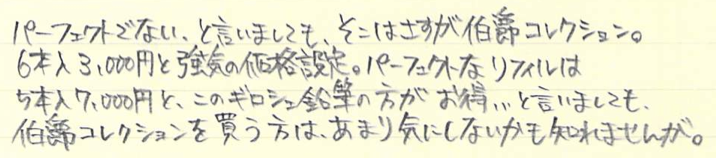 パーフェクトでない、と言いましても、そこはさすが伯爵コレクション。
6本入3,000円と強気の価格設定。パーフェクトなリフィルは
5本入7,000円と、このギロシェ鉛筆の方がお得…と言いましても、
伯爵コレクションを買う方は、あまり気にしないかも知れませんが。